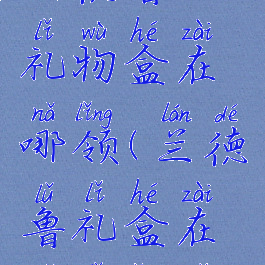 lǐ wù hé zài
礼物盒在
nǎ lǐng lán dé
哪领(兰德
lǔ lǐ hé zài
鲁礼盒在